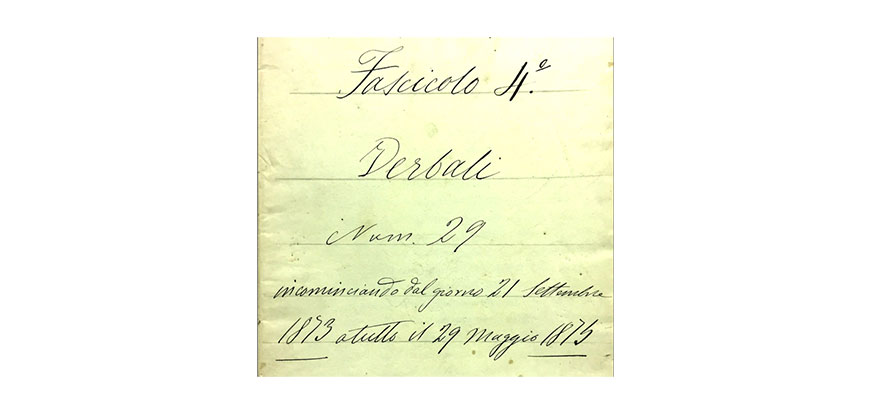 Fascicolo 4.º
Verbali
Num. 29
incominciando dal giorno 21 Settembre
1873 a tutto il 29 Maggio 1875